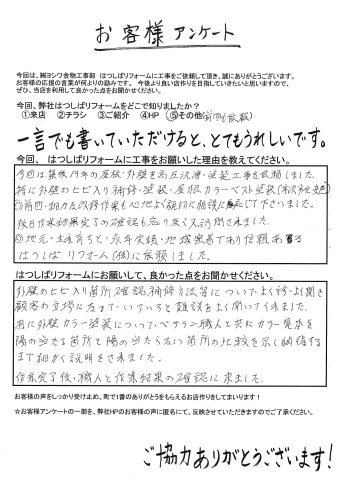 お客様アンケート
今回は、㈱ヨシワ金物工事部 はつしばリフォームに工事をご依頼して頂き、誠にありがとうございます。
お客様の応援の言葉が何よりの励みです。今後より良い店作りを目指していきたいと思いますので、
ぜひ、当店を利用して良かった点をお聞かせください。
今回、弊社はつしばリフォームをどこで知りましたか？
①来店 ②チラシ ③ご紹介 ④HP ⑤その他(前回も依頼)
一言でも書いていただけると、とてもうれしいです。
今回、はつしばリフォームに工事をお願いした理由を教えてください。
今回は築後19年の屋根・外壁を高圧洗滌・塗装工事を依頼しました。
特に外壁のヒビ入り補修・塗装・屋根カラーベスト塗装
前回・細かな改修作業も心地よく親切に相談に
後日作業結果完了の確認も
②地元・生え育ちで・永年実績・地域密着であり信頼ある
はつしばリフォーム(株)に依頼しました。
はつしばリフォームにお願いして、良かった点をお聞かせください。
外壁のヒビ入り箇所確認補修方法等についてよく診・よく聞き
顧客の立場に立って・いろいろと雑談をよく聞いてくれました。
特に外壁カラー塗装について・ベテラン職人と共にカラー見本を
陽の当たる箇所と陽の当たらない箇所の比較を示し納得する
まで細かく説明をされました。
作業完了後・職人と作業結果の確認に来ました。
お客様の声をしっかり受け止め、町で1番のありがとうをもらえるお店作りをしてまいります！
☆お客様アンケートの一部を、弊社HPのお客様の声に匿名にて、反映させていただきますのでご了承ください。
ご協力ありがとうございます！